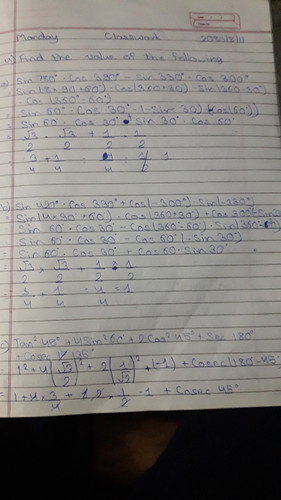 Monday Classwork 2080/8/11
a) Find the value of the following
a) Sin 780° · Cos 390° - Sin 330° · Cos 300°
Sin(8×90+60°) · Cos(360+30) - Sin(360-30°)
Cos(360°-60°)
= Sin 60° · Cos 30° - (-Sin 30) (Cos 60°)
= Sin 60° · Cos 30° Sin 30° · Cos 60°
= √3/2 · √3/2 + 1/2 · 1/2
= 3/4 + 1/4 = 1
b) Sin 420° · Cos 390° + Cos(-300°) · Sin(-330°)
= Sin(4×90+60) · Cos(360+30) + Cos 300
= Sin 60° · Cos 30 - Cos(360-60) · Sin
= Sin 60° · Cos 30° - Cos 60° (-Sin 30)
= Sin 60° · Cos 30° + Cos 60 · Sin 30°
= √3/2 × √3/2 + 1/2 × 1/2
= 3/4 + 1/4 = 4/4 = 1
c) Tan² 45° + 4 Sin² 60° + 2 Cos² 45° + Sec 180°
+ Cosec 135°
= 1² + 4(√3/2)² + 2(1/√2)² + (-1) + Cosec(180-45°)
= 1 + 4 × 3/4 + 2 · 1/2 - 1 + Cosec 45°